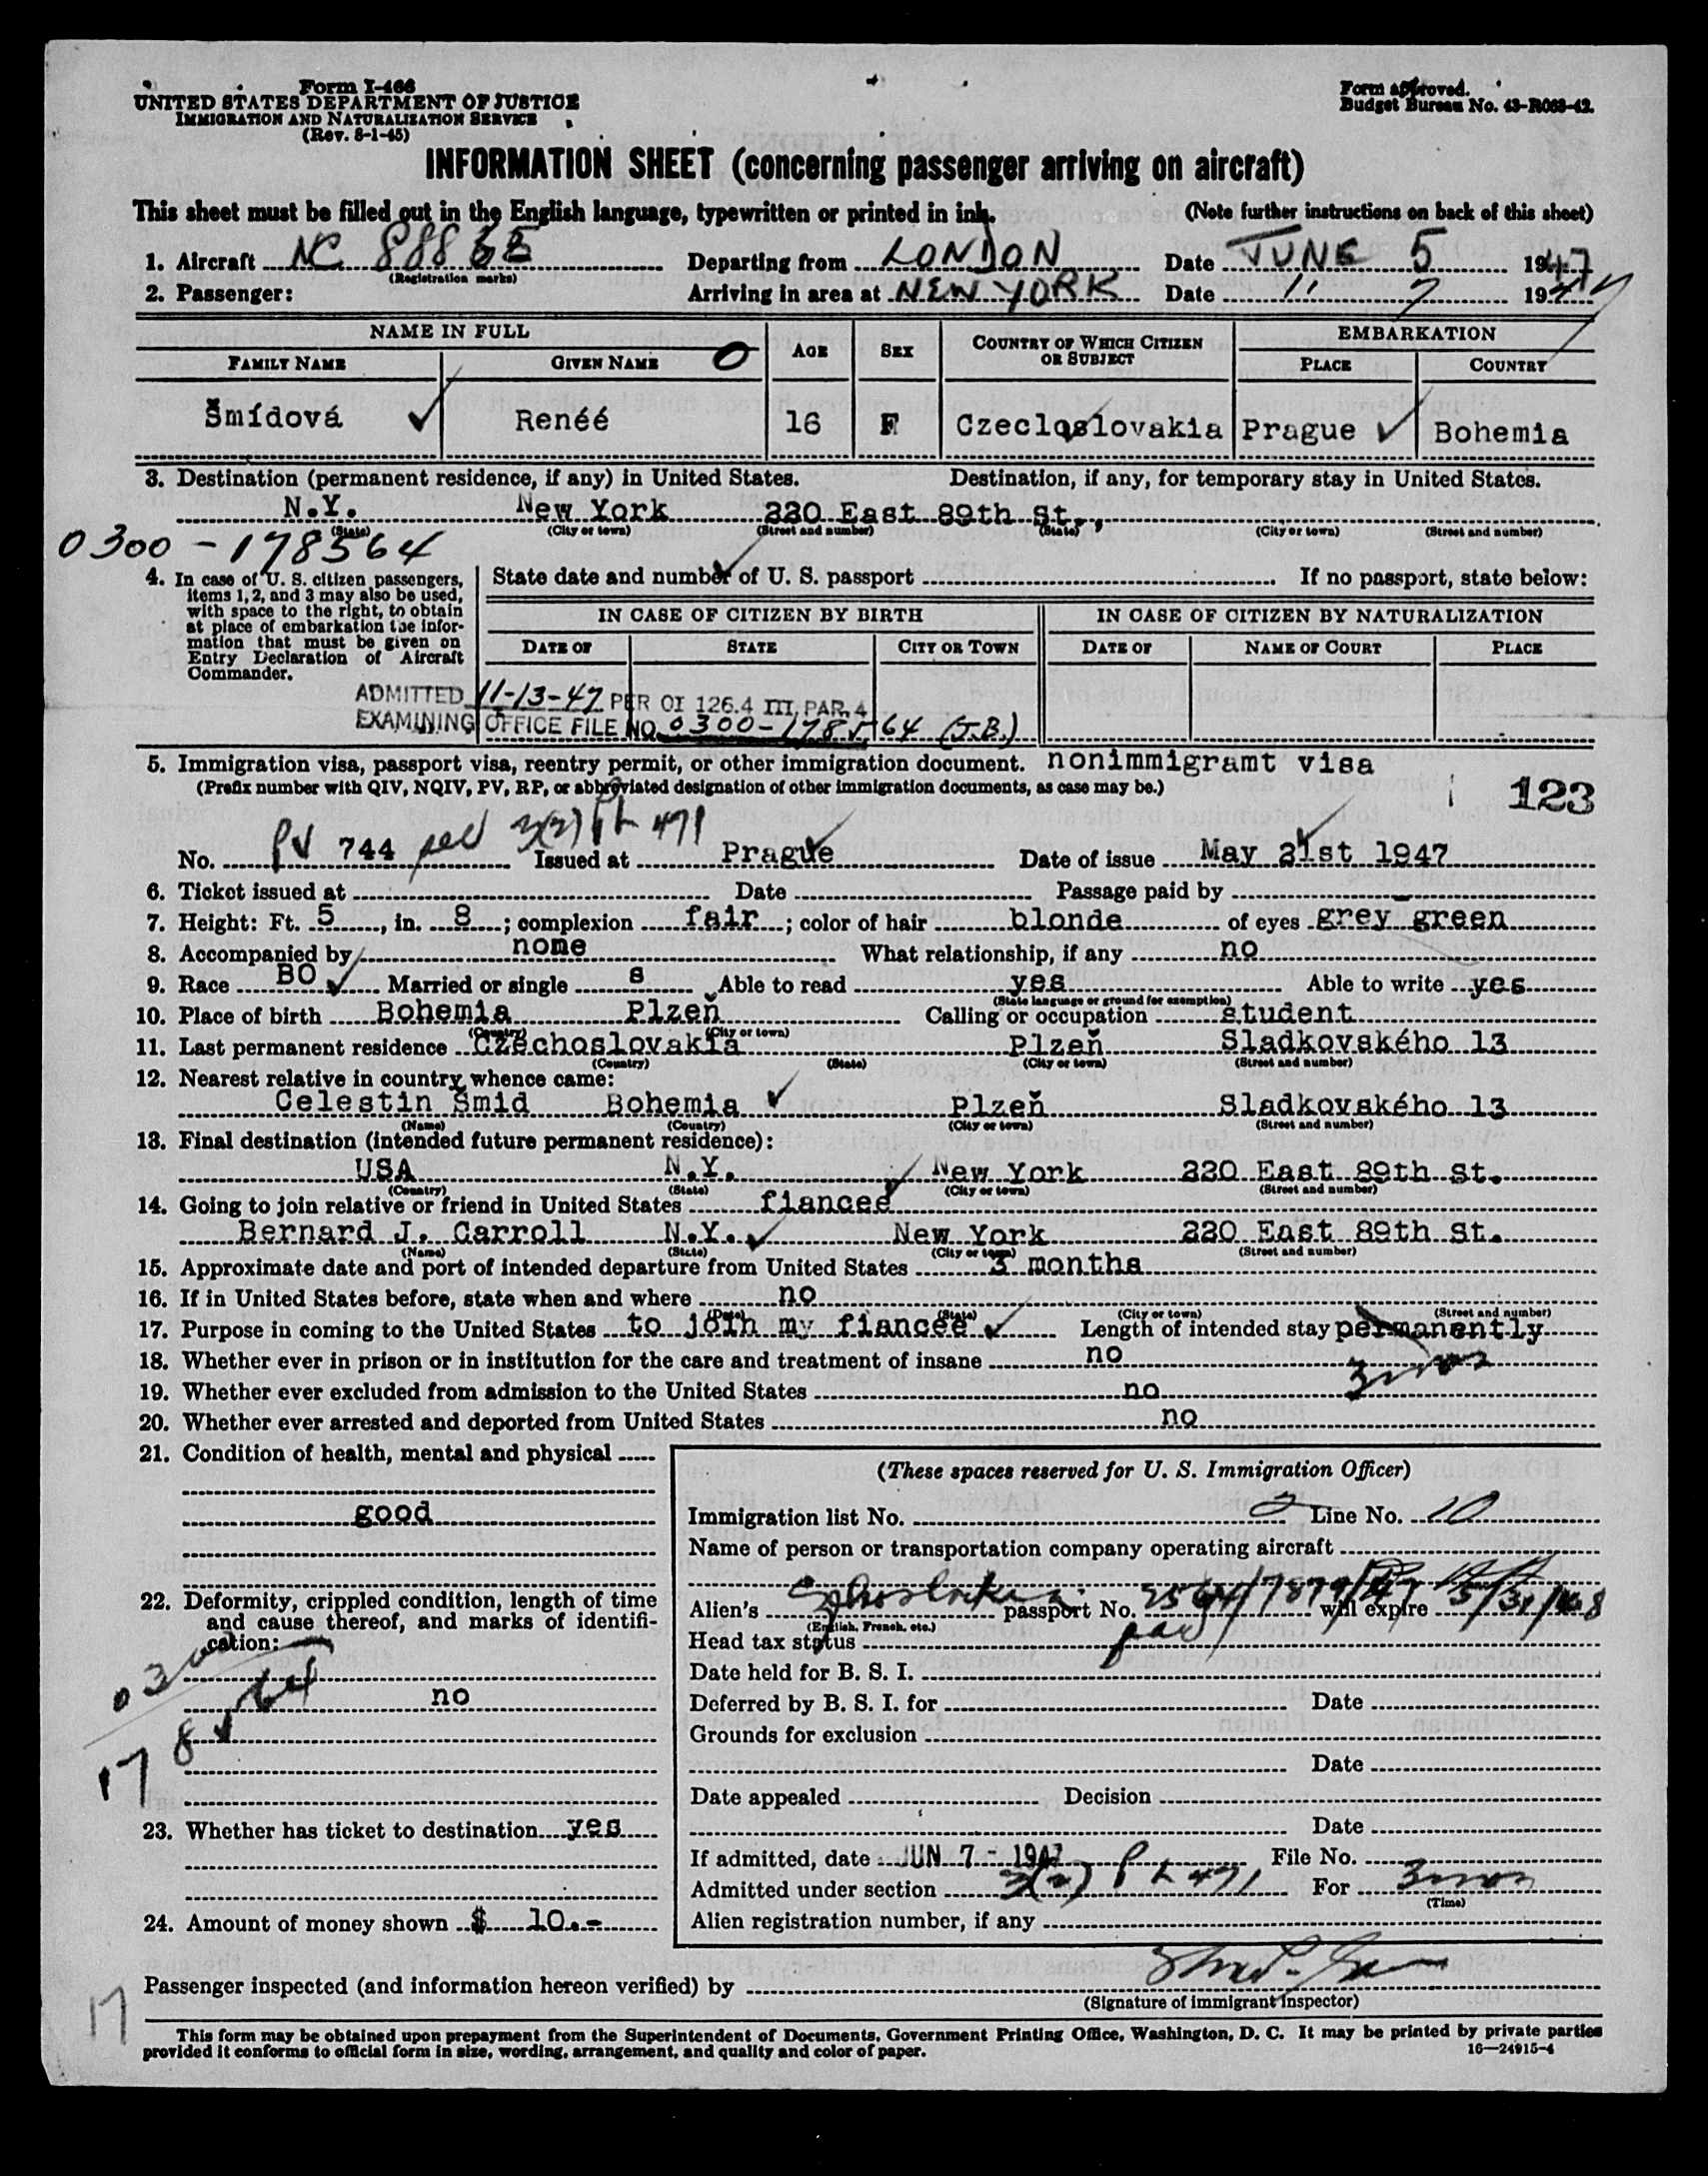 Form I-466
UNITED STATES DEPARTMENT OF JUSTICE
IMMIGRATION AND NATURALIZATION SERVICE
(Rev. 8-1-45)
Form approved.
Budget Bureau No. 43-R063-42.
INFORMATION SHEET (concerning passenger arriving on aircraft)
This sheet must be filled out in the English language, typewritten or printed in ink. (Note further instructions on back of this sheet)
1. Aircraft NC Departing from LONDON Date JUNE 5 1947
(Registration marks)
2. Passenger: Arriving in area at NEW YORK Date 11 7 1947
NAME IN FULL AGE SEX COUNTRY OF WHICH CITIZEN OR SUBJECT EMBARKATION
FAMILY NAME GIVEN NAME O PLACE COUNTRY
Šmídová Renéé 16 F Czecloslovakia Prague Bohemia
3. Destination (permanent residence, if any) in United States. Destination, if any, for temporary stay in United States.
N.Y. New York 220 East 89th St.,
(State) (City or town) (Street and number) (State) (City or town) (Street and number)
0300-178564
4. In case of U. S. citizen passengers, items 1, 2, and 3 may also be used, with space to the right, to obtain at place of embarkation the information that must be given on Entry Declaration of Aircraft Commander.
State date and number of U. S. passport If no passport, state below:
IN CASE OF CITIZEN BY BIRTH IN CASE OF CITIZEN BY NATURALIZATION
DATE OF STATE CITY OR TOWN DATE OF NAME OF COURT PLACE
ADMITTED 11-13-47 PER OI 126.4 III, PAR. 4
EXAMINING OFFICE FILE NO. 0300-178564 (J.B.)
5. Immigration visa, passport visa, reentry permit, or other immigration document. nonimmigramt visa
(Prefix number with QIV, NQIV, PV, RP, or abbreviated designation of other immigration documents, as case may be.)
123
No. PV 744 3(2) 471 Issued at Prague Date of issue May 21st 1947
6. Ticket issued at Date Passage paid by
7. Height: Ft. 5, in. 8; complexion fair; color of hair blonde of eyes grey green
8. Accompanied by none What relationship, if any no
9. Race BO Married or single s Able to read yes Able to write yes
(State language or ground for exemption)
10. Place of birth Bohemia Plzeň Calling or occupation student
(Country) (City or town)
11. Last permanent residence Czechoslovakia Plzeň Sladkovského 13
(Country) (State) (City or town) (Street and number)
12. Nearest relative in country whence came:
Celestin Šmid Bohemia Plzeň Sladkovského 13
(Name) (Country) (City or town) (Street and number)
13. Final destination (intended future permanent residence):
USA N.Y. New York 220 East 89th St.
(Country) (State) (City or town) (Street and number)
14. Going to join relative or friend in United States fianceé
Bernard J. Carroll N.Y. New York 220 East 89th St.
(Name) (State) (City or town) (Street and number)
15. Approximate date and port of intended departure from United States 3 months
16. If in United States before, state when and where no
(Date) (State) (City or town) (Street and number)
17. Purpose in coming to the United States to join my fianceé Length of intended stay permanently
3 mos
18. Whether ever in prison or in institution for the care and treatment of insane no
19. Whether ever excluded from admission to the United States no
20. Whether ever arrested and deported from United States no
21. Condition of health, mental and physical
good
22. Deformity, crippled condition, length of time and cause thereof, and marks of identification:
0300
17 8 5 64
no
23. Whether has ticket to destination yes
24. Amount of money shown $ 10.-
(These spaces reserved for U. S. Immigration Officer)
Immigration list No. 2 Line No. 10
Name of person or transportation company operating aircraft
Alien's passport No. will expire 5/31/48
(English, French, etc.)
Head tax status
Date held for B. S. I.
Deferred by B. S. I. for Date
Grounds for exclusion
Date
Date appealed Decision
Date
If admitted, date JUN 7 - 1947 File No.
Admitted under section 3(2) 471 For 3 mos
(Time)
Alien registration number, if any
Passenger inspected (and information hereon verified) by
(Signature of immigrant inspector)
17
This form may be obtained upon prepayment from the Superintendent of Documents, Government Printing Office, Washington, D. C. It may be printed by private parties
provided it conforms to official form in size, wording, arrangement, and quality and color of paper. 16—24915-4